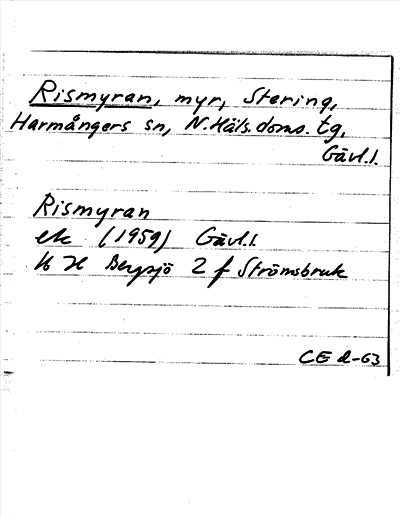 Rismyran, myr, Stering,
Harmångers sn, N.Häls.doms. tg,
Gävl.l.
Rismyran
ek (1959) Gävl.l.
Bergsjö 2 f Strömsbruk
CE d-63